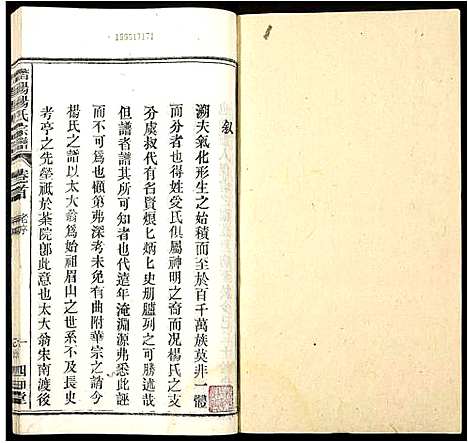 199517171
敘
溯夫氣化形生之始積而至於百千萬族莫非一體
而分者也得姓受氏俱屬神明之裔而况楊氏之支
分虞叔代有名賢烺七炳七史册臚列之可勝述哉
但譜者譜其所可知者也代遠年淹淵源弗悉此誣
而不可為也顧第弗深考未免有曲附華宗之誚今
楊氏之譜以太大翁為始祖眉山之世不及長史
考亭之先塋祇於茶院郎此意也太大翁宋南渡後
楊氏
卷之首
一
四知堂